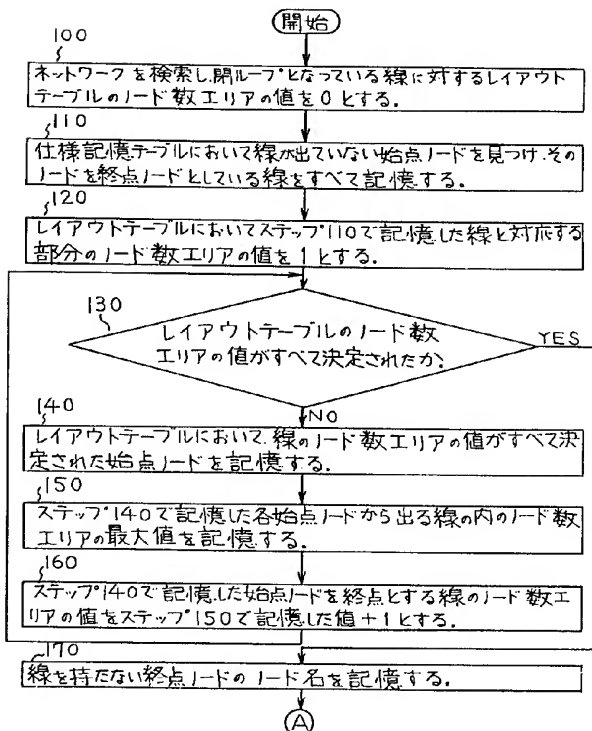 開始
100
ネットワークを検索し、開ループとなっている線に対するレイアウト
テーブルのノード数エリアの値を0とする.
110
仕様記憶テーブルにおいて線が出ていない始点ノードを見つけ、その
ノードを終点ノードとしている線をすべて記憶する.
120
レイアウトテーブルにおいてステップ110で記憶した線と対応する
部分のノード数エリアの値を1とする.
130
レイアウトテーブルのノード数
エリアの値がすべて決定されたか.
YES
NO
140
レイアウトテーブルにおいて、線のノード数エリアの値がすべて決
定された始点ノードを記憶する.
150
ステップ140で記憶した各始点ノードから出る線の内のノード数
エリアの最大値を記憶する.
160
ステップ140で記憶した始点ノードを終点とする線のノード数エ
リアの値をステップ150で記憶した値+1とする.
170
線を持たない終点ノードのノード名を記憶する.
A